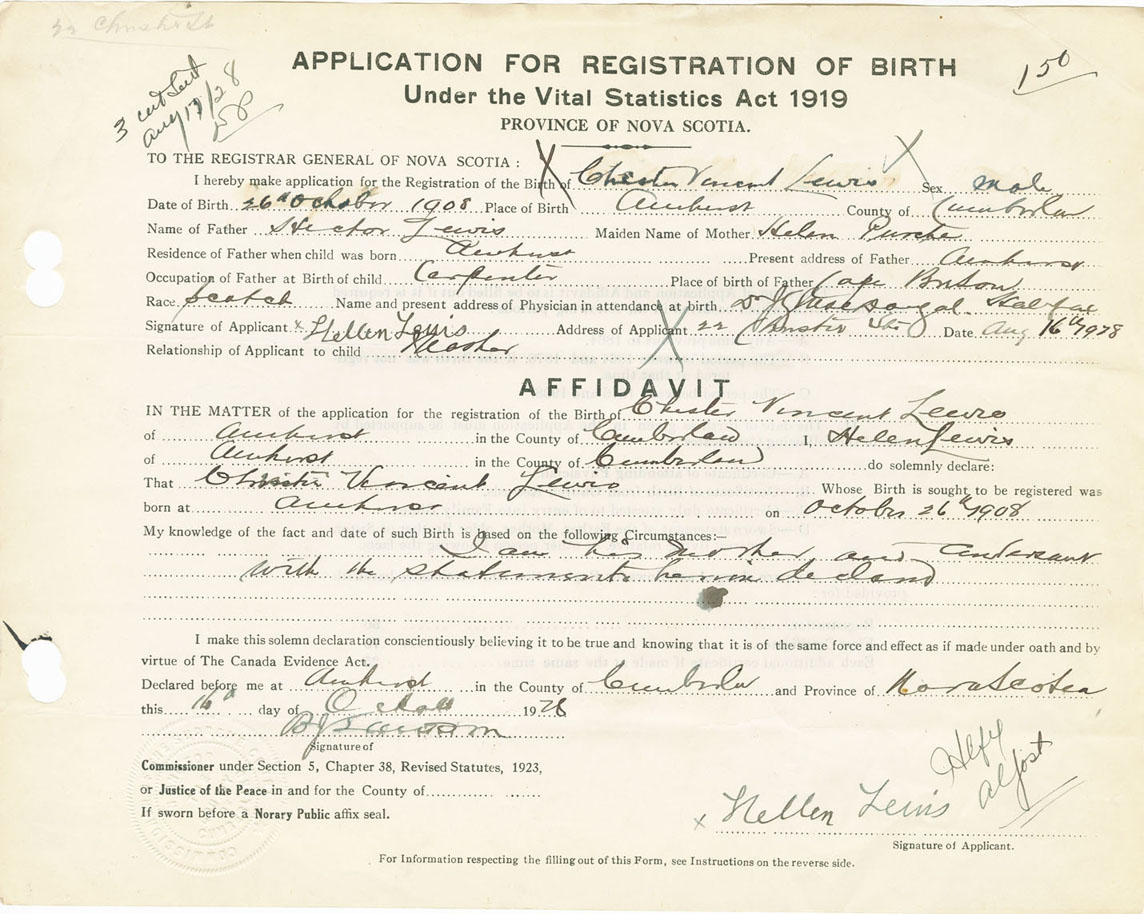 22 Christie St
3 cert sent
Aug 17/28
150
APPLICATION FOR REGISTRATION OF BIRTH
Under the Vital Statistics Act 1919
PROVINCE OF NOVA SCOTIA.
TO THE REGISTRAR GENERAL OF NOVA SCOTIA :
I hereby make application for the Registration of the Birth of Chester Vincent Lewis Sex male
Date of Birth 26th October 1908 Place of Birth Amherst County of Cumberland
Name of Father Hector Lewis Maiden Name of Mother Helen
Residence of Father when child was born Amherst Present address of Father Amherst
Occupation of Father at Birth of child Carpenter Place of birth of Father Cape Briton
Race Scotch Name and present address of Physician in attendance at birth Dr J Halifax
Signature of Applicant x Hellen Lewis Address of Applicant 22 St Date Aug 16th 1928
Relationship of Applicant to child Mother
AFFIDAVIT
IN THE MATTER of the application for the registration of the Birth of Chester Vincent Lewis
of Amherst in the County of Cumberland I, Helen Lewis
of Amherst in the County of Cumberland do solemnly declare:
That Chester Vincent Lewis Whose Birth is sought to be registered was
born at Amherst on October 26th 1908
My knowledge of the fact and date of such Birth is based on the following Circumstances:—
I am his mother and
with the statements herein declared
I make this solemn declaration conscientiously believing it to be true and knowing that it is of the same force and effect as if made under oath and by
virtue of The Canada Evidence Act.
Declared before me at Amherst in the County of Cumberland and Province of Nova Scotia
this 16th day of 1928
Signature of
Commissioner under Section 5, Chapter 38, Revised Statutes, 1923,
or Justice of the Peace in and for the County of
If sworn before a Norary Public affix seal.
x Hellen Lewis
Signature of Applicant.
For Information respecting the filling out of this Form, see Instructions on the reverse side.